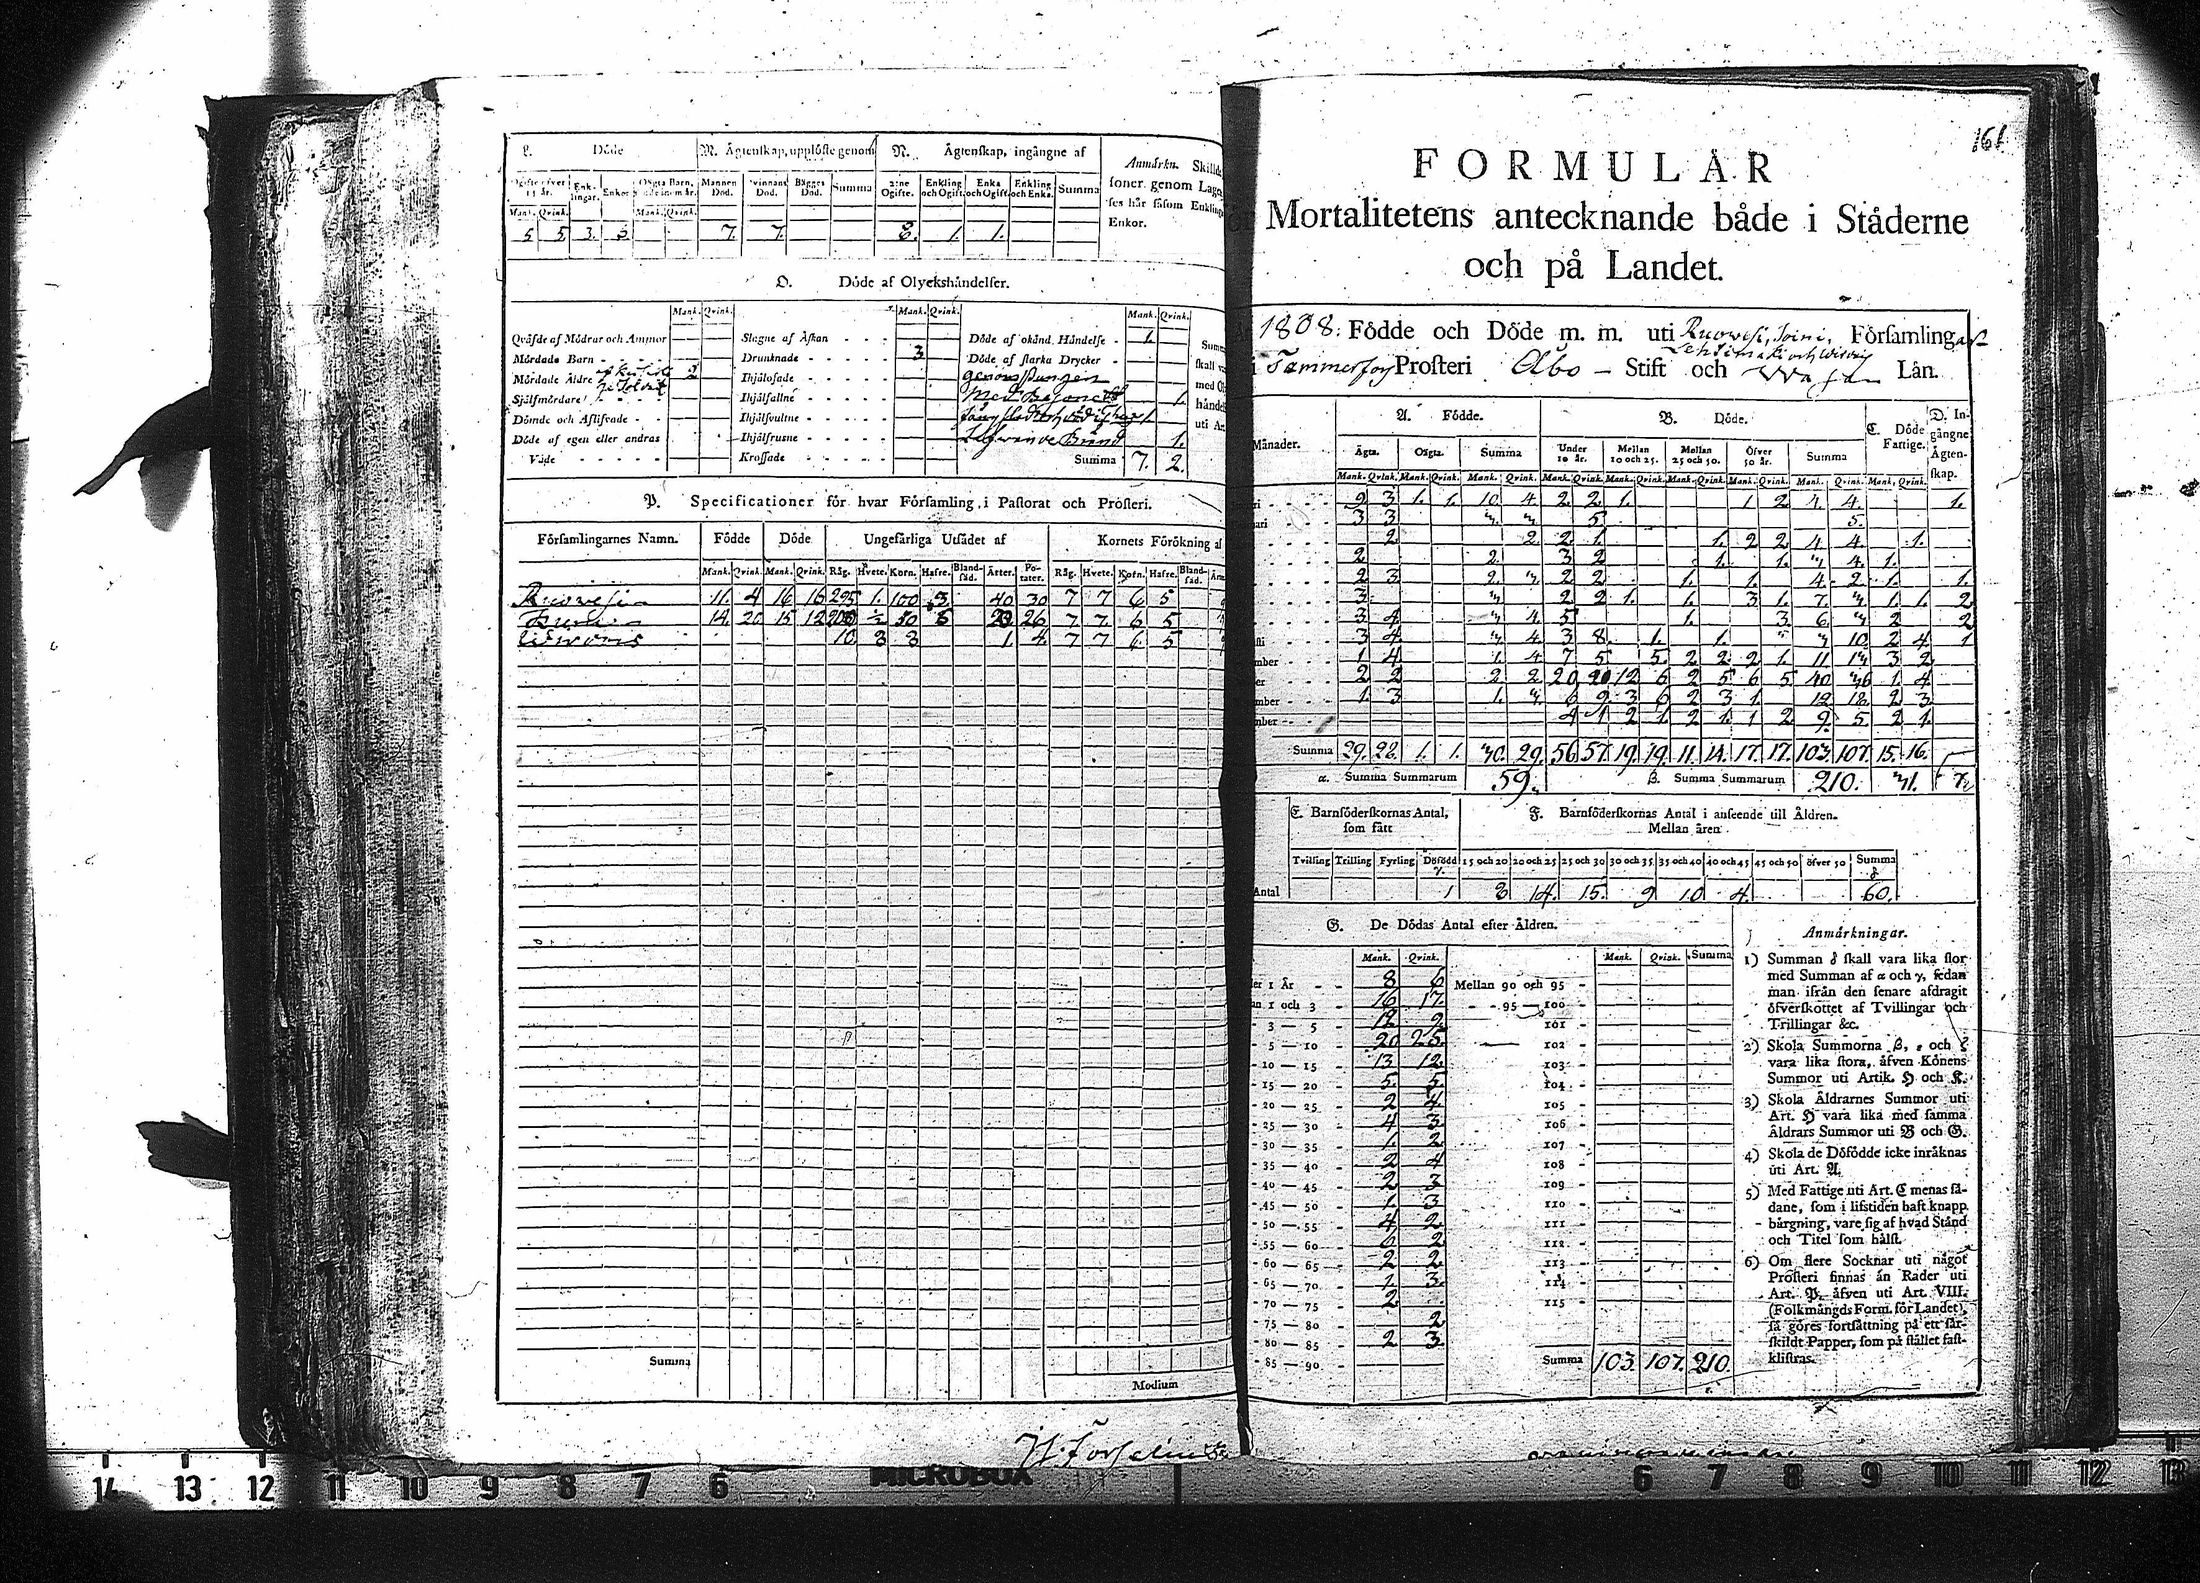 L. Döde
M. Ägtenskap, upplöste genom
N. Ägtenskap, ingångne af
Anmärkn. Skillde
Ogifte öfver 15 år. Enklingar. Enkor. Oägta Barn, Mannens Död. Qvinnans Död. Bägges Död. Summa
2:ne Ogifte. Enkling och Ogift. Enka och Ogift. Enkling och Enka. Summa
soner genom Lage
ses här såsom Enklinga
Enkor.
Mank. Qvink. Mank. Qvink.
5. 5. 3. 3. 7. 7. 8. 1. 1.
O. Döde af Olyckshändelser.
Mank. Qvink. Mank. Qvink. Mank. Qvink.
Qväfde af Mödrar och Ammor Slagne af Åskan Döde af okänd Händelse 1.
Mördade Barn Drunknade 3 Döde af starka Drycker
Mördade Äldre 2 Ihjälosade genom
Sjelfmördare Ihjälfallne 1.
Dömde och Aflifvade Ihjälsvultne 1.
Döde af egen eller andras Ihjälfrusne 1.
Våde Krossade Summa 7. 2.
P. Specificationer för hvar Församling i Pastorat och Prosteri.
Församlingarnes Namn. Födde Döde Ungefärliga Utsädet af Kornets Förökning af
Mank. Qvink. Mank. Qvink. Råg. Hvete. Korn. Hafre. Blandsäd. Ärter. Potater. Råg. Hvete. Korn. Hafre. Blandsäd.
Ruovesi 11. 4 16 16 295 1. 100 3. 40 30 7 7 6 5
14. 20 15 12 200 ½ 50 5 20 26 7 7. 6 5
10 8 8 1. 4. 7 7 6. 5
Summa
Medium
161
FORMULÄR
Mortalitetens antecknande både i Städerne
och på Landet.
1808. Födde och Döde m. m. uti Ruovesi, Soini, Församlingar
Lehtimäki och Wirdois
i Tammerfors Prosteri Åbo Stift och Wasa Län.
Månader. A. Födde. B. Döde. C. Döde Fattige. D. Ingångne Ägtenskap.
Ägta. Oägta. Summa Under 10 år. Mellan 10 och 25. Mellan 25 och 50. Öfver 50 år. Summa
Mank. Qvink. Mank. Qvink. Mank. Qvink. Mank. Qvink. Mank. Qvink. Mank. Qvink. Mank. Qvink. Mank. Qvink. Mank. Qvink.
9 3 1. 1. 10 4 2 2 1. 1 2 4. 4. 1.
3 3 3. 3. 5 5.
2 2 2 1. 1. 2 2 4 4. 1.
2 2. 3 2 1. 1. 3. 4. 1.
2 3 2. 3 2 2 1. 1. 4. 2 1. 1.
3 3 2 2 1. 1. 3 1. 7. 3. 1. 1. 2
3 4 3 4 5 1. 3 6. 3 2 2
3 4 3 4 3 8. 1. 1. 3 10 2 4 1
1 4 1. 4 7 5 5. 2 2 2 1. 11 13 3 2
2 2 2 2 20 20 12 6 2 5 6 5 40 36 1. 4
1. 3 1. 3. 6 9 3 6 2 3 1. 12 18 2 3
4 1 2 1. 2 1. 1 2 9. 5 2 1.
Summa 29. 28. 1. 1. 30. 29. 56 57. 19. 19. 11. 14. 17. 17. 103. 107. 15. 16.
α. Summa Summarum 59. β. Summa Summarum 210. 31.
E. Barnföderskornas Antal, som fått
F. Barnföderskornas Antal i anseende till Åldren.
Mellan åren
Tvilling Trilling Fyrling Dödfödd 15 och 20 20 och 25 25 och 30 30 och 35 35 och 40 40 och 45 45 och 50 öfver 50 Summa
Antal 1 8 14. 15. 9 10 4. 60.
G. De Dödas Antal efter Åldren.
Mank. Qvink. Mank. Qvink. Summa
1 År 8 6 Mellan 90 och 95
1 och 3 16 17. 95 — 100
3 — 5 12 9. 101
5 — 10 20 25. 102
10 — 15 13 12. 103
15 — 20 5. 5. 104
20 — 25 2 4 105
25 — 30 4 3. 106
30 — 35 1. 2 107
35 — 40 2 4 108
40 — 45 2 3 109
45 — 50 1. 3 110
50 — 55 4. 2 111
55 — 60 6 2 112
60 — 65 2 2 113
65 — 70 1. 3. 114
70 — 75 2 115
75 — 80 2
80 — 85 2 3
85 — 90 Summa 103. 107. 210.
Anmärkningar.
1) Summan δ skall vara lika stor
med Summan af α och γ, sedan
man ifrån den senare afdragit
öfverskottet af Tvillingar och
Trillingar &c.
2) Skola Summorna β, ε och ζ
vara lika stora, äfven Könens
Summor uti Artik. H och K.
3) Skola Åldrarnes Summor uti
Art. H vara lika med samma
Åldrars Summor uti B och G.
4) Skola de Döfödde icke inräknas
uti Art. A.
5) Med Fattige uti Art. C menas sådane, som i lifstiden haft knapp
bärgning, vare sig af hvad Stånd
och Titel som hälst.
6) Om flere Socknar uti något
Prosteri finnas än Rader uti
Art. P, äfven uti Art. VIII.
(Folkmängds Form. för Landet),
så göres fortsättning på ett särskildt Papper, som på stället fastklistras.
14 13 12 11 10 9 8 7 6 MICROBOX 6 7 8 9 10 11 12 13